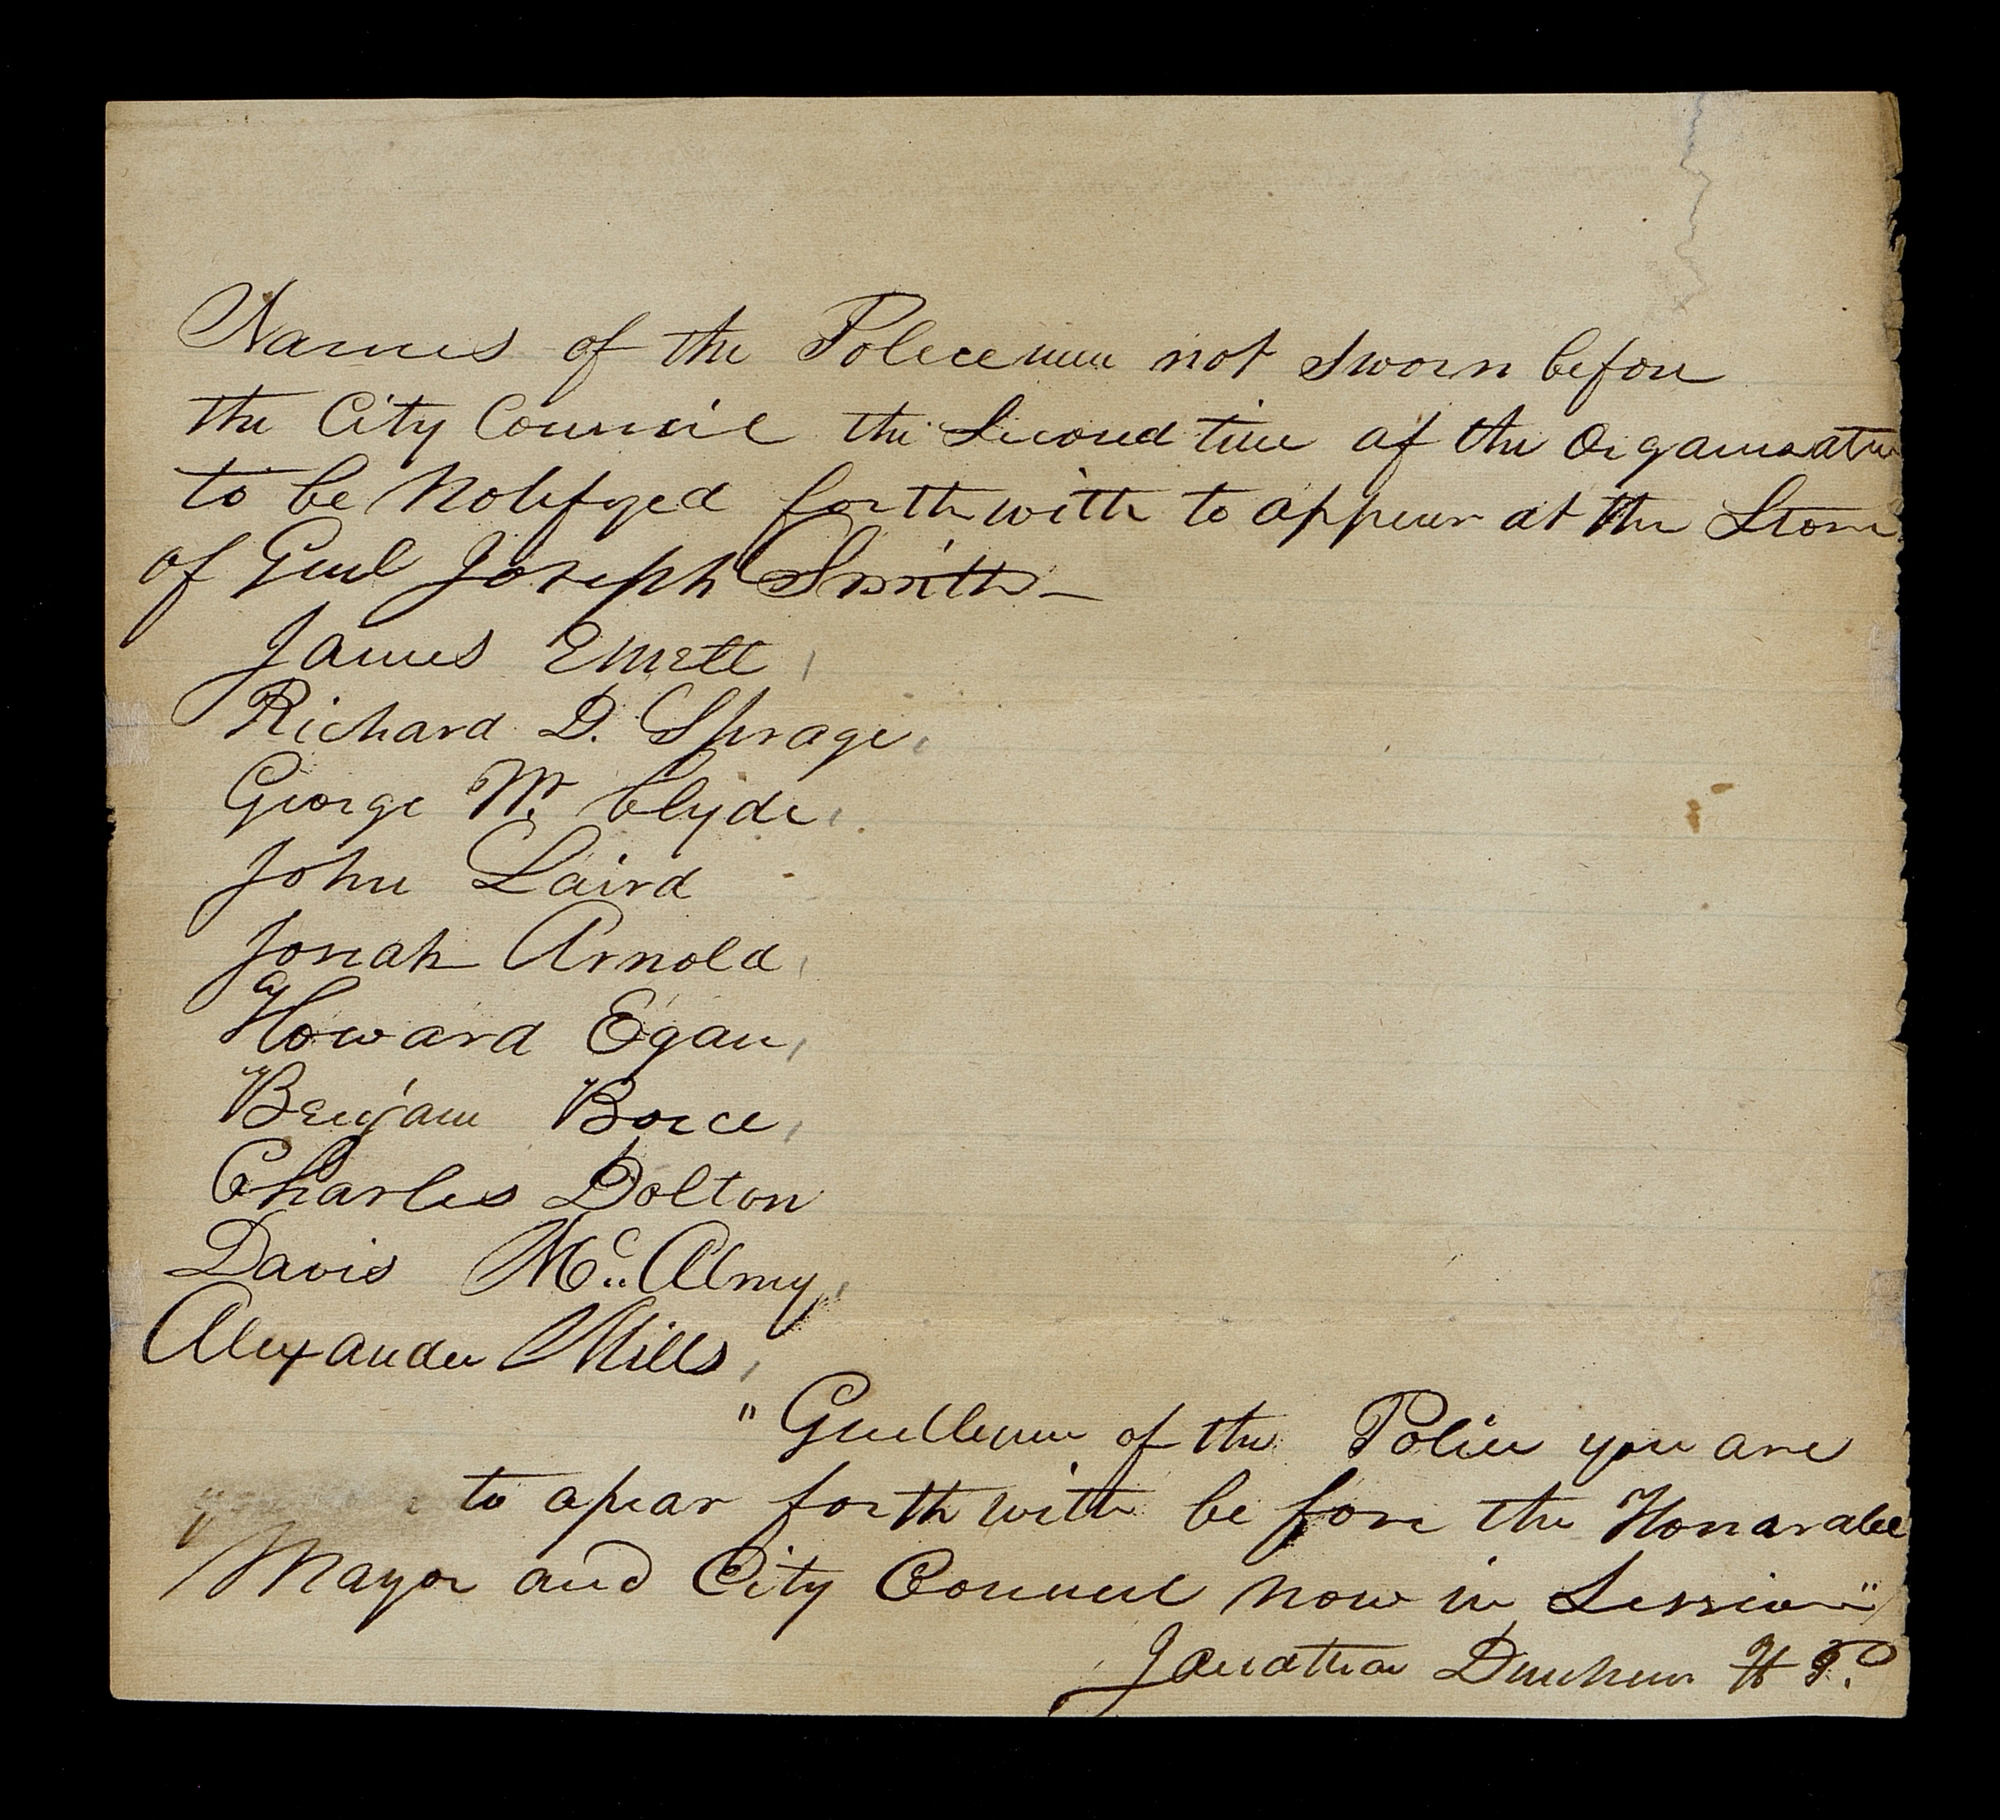 Names of the Policemen not Sworn before
the City Council the Second time of the Organisation
to be Notifyed forthwith to appear at the Store
of Genl Joseph Smith—
James Emett
Richard D. Sprage
George W. Clyde
John Laird
Josiah Arnold
Howard Egan
Benjam Boice
Charles Dolton
Davis Mc Almy
Alexander Mills
"Gentlemen of the Police you are
to apear forthwith be fore the Honarable
Mayor and City Council now in Session"
Jonathan Dunham H. P.